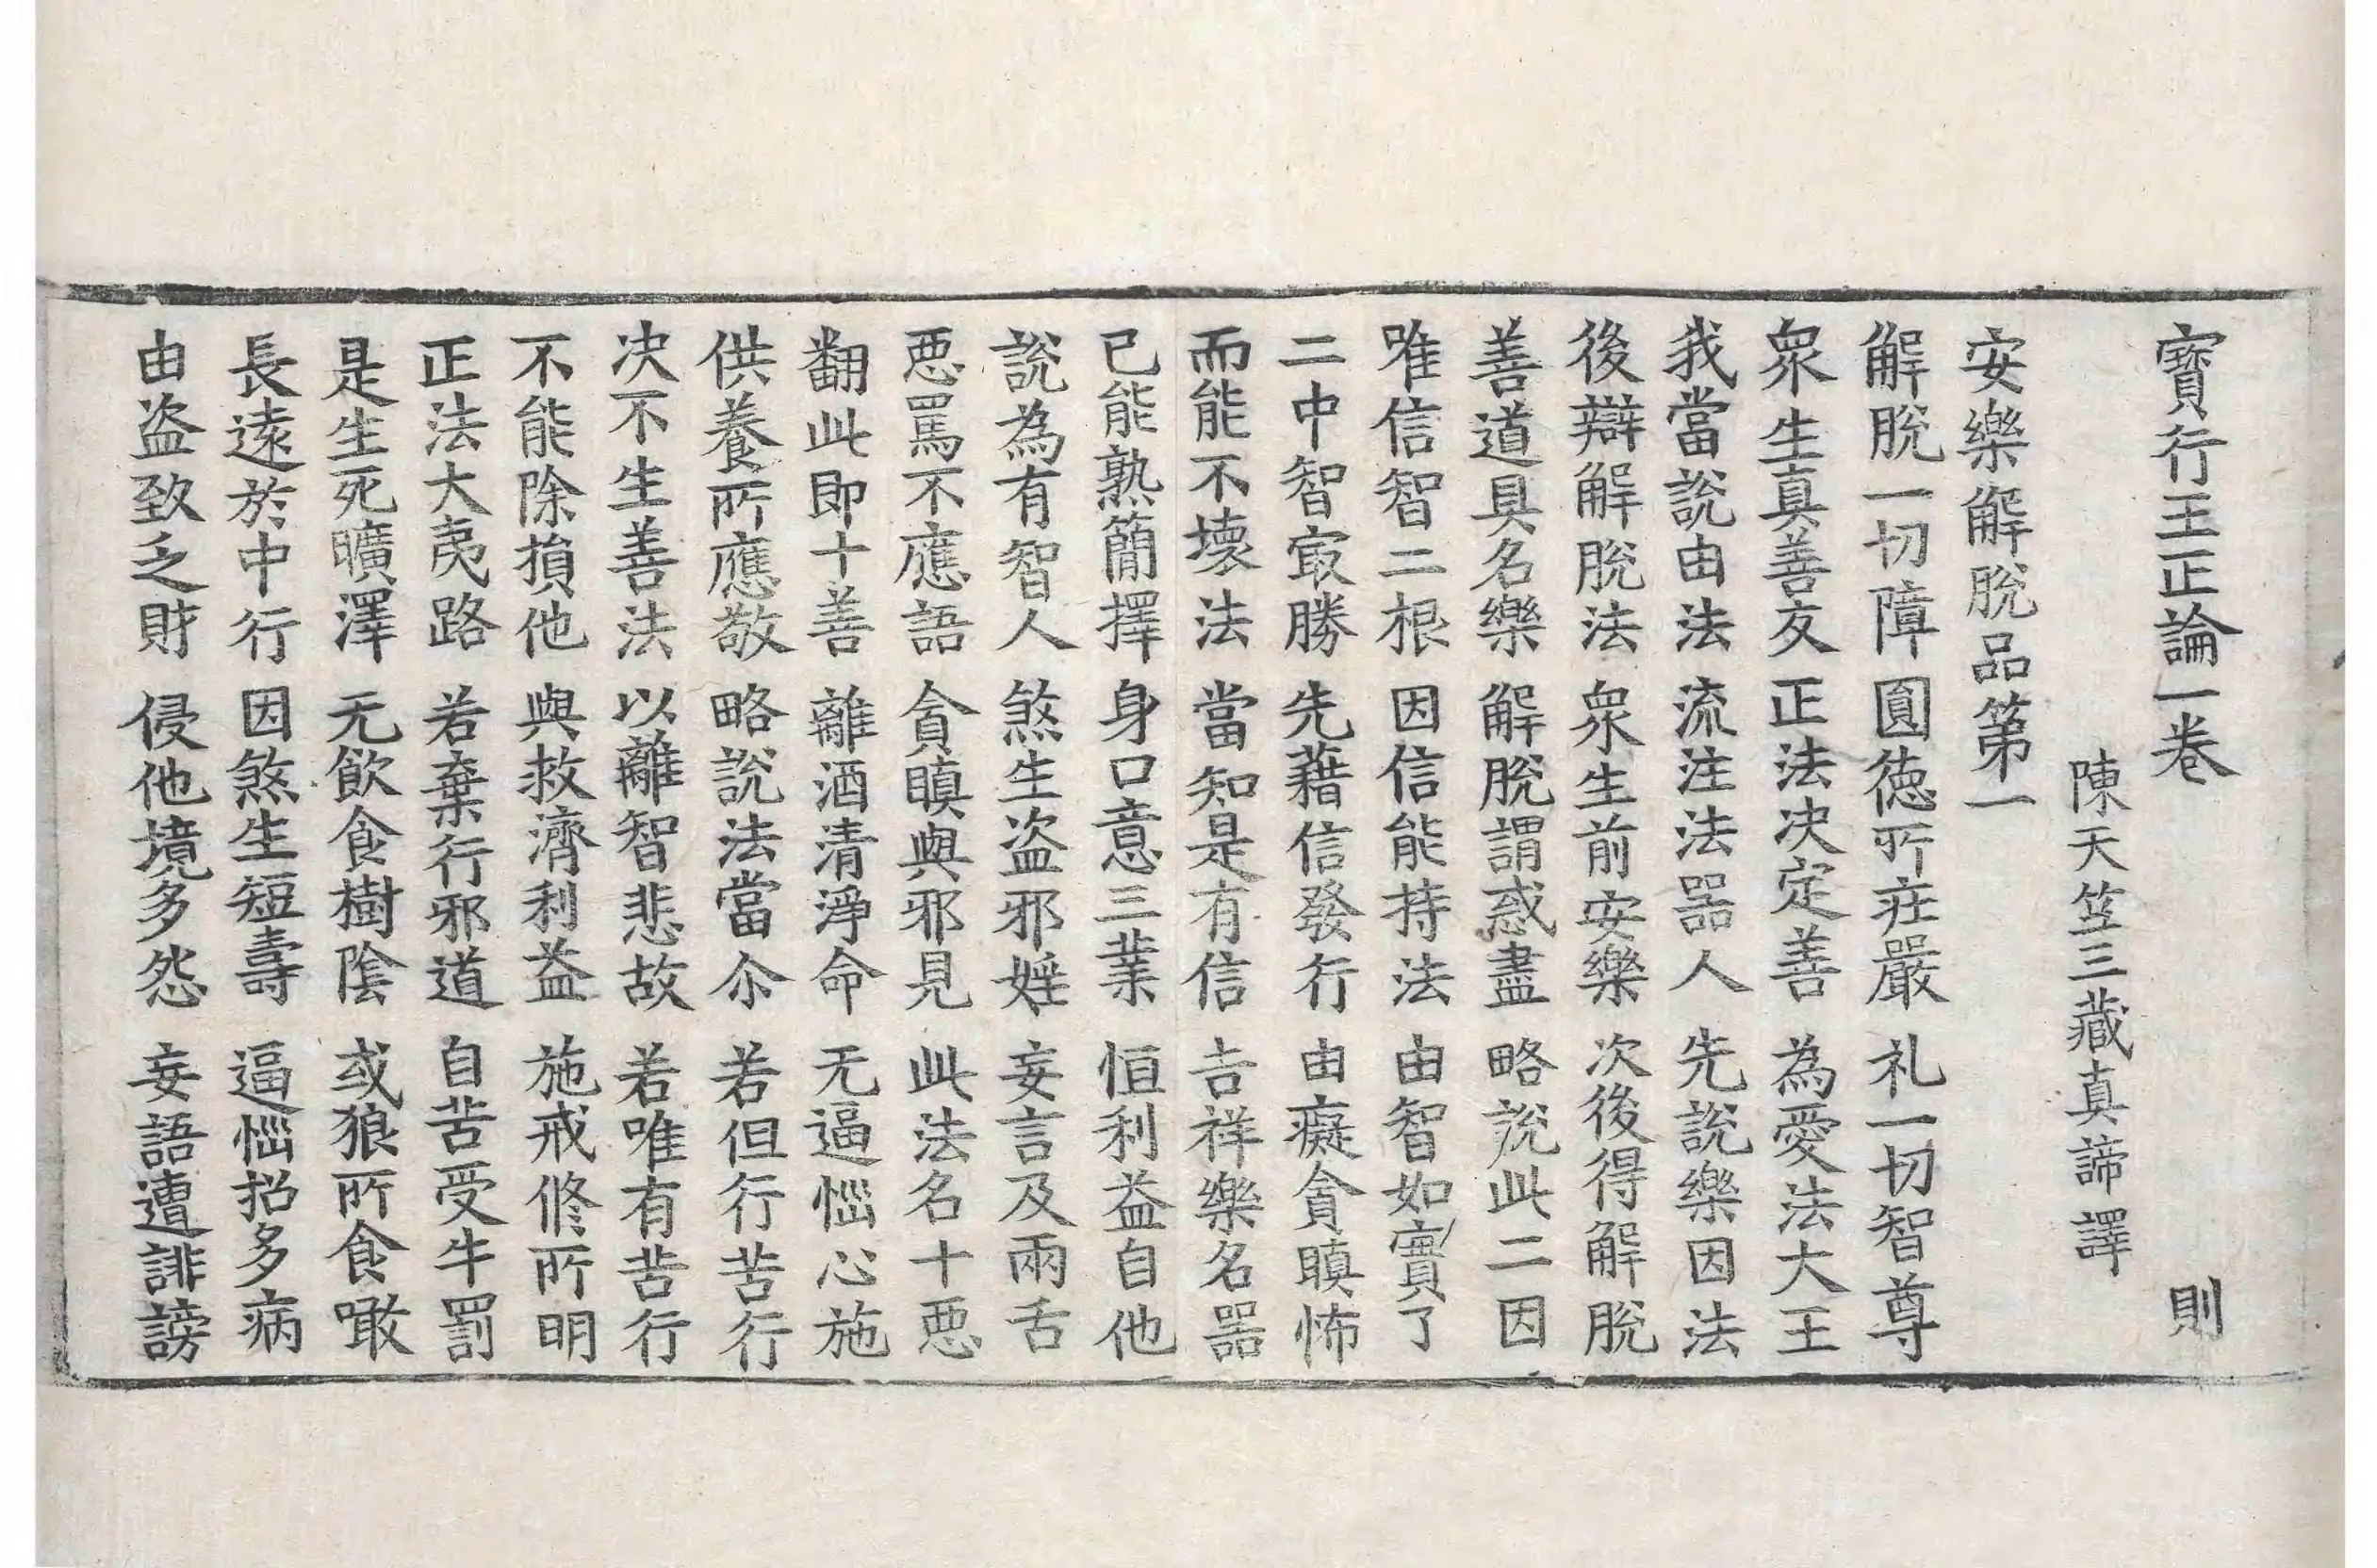 寶行王正論一卷 則
陳天笁三藏真諦譯
安樂解脫品第一
解脫一切障 圓德所莊嚴 礼一切智尊
衆生真善友 正法决定善 為愛法大王
我當說由法 流注法器人 先說樂因法
後辯解脫法 衆生前安樂 次後得解脫
善道具名樂 解脫謂惑盡 略說此二因
唯信智二根 因信能持法 由智如實了
二中智㝡勝 先藉信發行 由癡貪瞋怖
而能不壞法 當知是有信 吉祥樂名器
已能熟簡擇 身口意三業 恒利益自他
說為有智人 煞生盜邪婬 妄言及兩舌
惡罵不應語 貪瞋與邪見 此法名十惡
翻此即十善 離酒清淨命 无逼惱心施
供養所應敬 略說法當尒 若但行苦行
决不生善法 以離智悲故 若唯有苦行
不能除損他 與救濟利益 施戒修所明
正法大夷路 若棄行邪道 自苦受牛罰
是生死曠澤 无飲食樹陰 或狼所食噉
長遠於中行 因煞生短壽 逼惱招多病
由盜致乏財 侵他境多怨 妄語遭誹謗